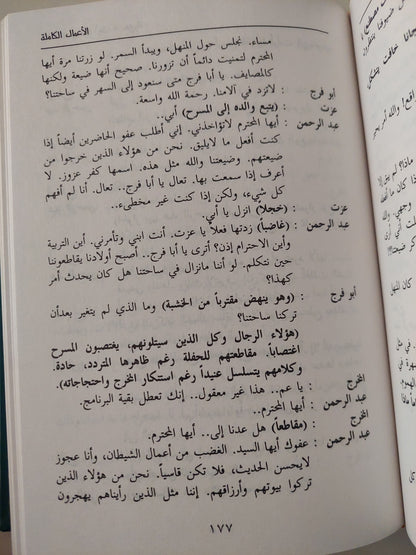 الأعمال الكاملة
مساء. نجلس حول المنهل، ويبدأ السمر. لو زرتنا مرة أيها
المحترم لتمنيت دائماً أن تزورنا. صحيح أنها ضيعة ولكنها
كالمصايف. يا أبا فرج متى سنعود إلى السهر في ساحتنا؟
أبو فرج : لاتزد في آلامنا. رحمة الله واسعة.
عزت : (يتبع والده إلى المسرح) أبي..
عبد الرحمن : أيها المحترم لاتؤاخذني. إني أطلب عفو الحاضرين أيضاً إذا
كنت أفعل ما لايليق. نحن من هؤلاء الذين خرجوا من
ضيعتهم. وضيعتنا والله مثل هذه. اسمها كفر عزوز. لا
أعرف إذا سمعت بها. تعال يا أبا فرج.. تعال. أنا لم أفهم
كل شيء، ولكن إذا كنت غير مخطىء..
عزت : (خجلاً) انزل يا أبي.
عبد الرحمن : (غاضباً) زدتها فعلاً يا عزت. أنت ابني وتأمرني. أين التربية
وأين الاحترام إذن؟ أترى يا أبا فرج.. أصبح أولادنا يقاطعوننا
حين نتكلم. لو أننا مانزال في ساحتنا هل كان يحدث أمر
كهذا؟
أبو فرج : (وهو ينهض مقترباً من الخشبة) وما الذي لم يتغير بعدأن
تركنا ساحتنا؟
(هؤلاء الرجال وكل الذين سيتلونهم، يغتصبون المسرح
اغتصاباً. مقاطعتهم للحفلة رغم ظاهرها المتردد، حادة.
وكلامهم يتسلسل عنيداً رغم استنكار المخرج واحتجاجاته).
المخرج : يا عم.. هذا غير معقول.. إنك تعطل بقية البرنامج.
عبد الرحمن : أيها المحترم..
المخرج : (مقاطعاً) هل عدنا إلى.. أيها المحترم.
عبد الرحمن : عفوك أيها السيد. الغضب من أعمال الشيطان، وأنا عجوز
لايحسن الحديث، فلا تكن قاسياً. نحن من هؤلاء الذين
تركوا بيوتهم وأرزاقهم. إننا مثل الذين رأيناهم يهجرون
١٧٧